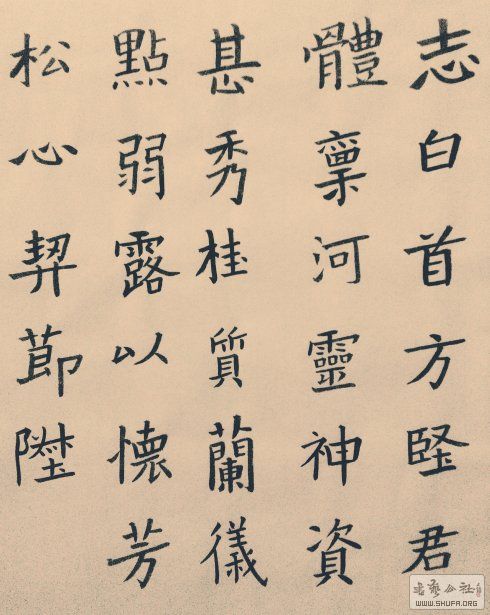 志白首方堅君
體稟河靈神資
甚秀桂質蘭儀
點弱露以懷芳
松心契莭
WWW.SHUFA.ORG